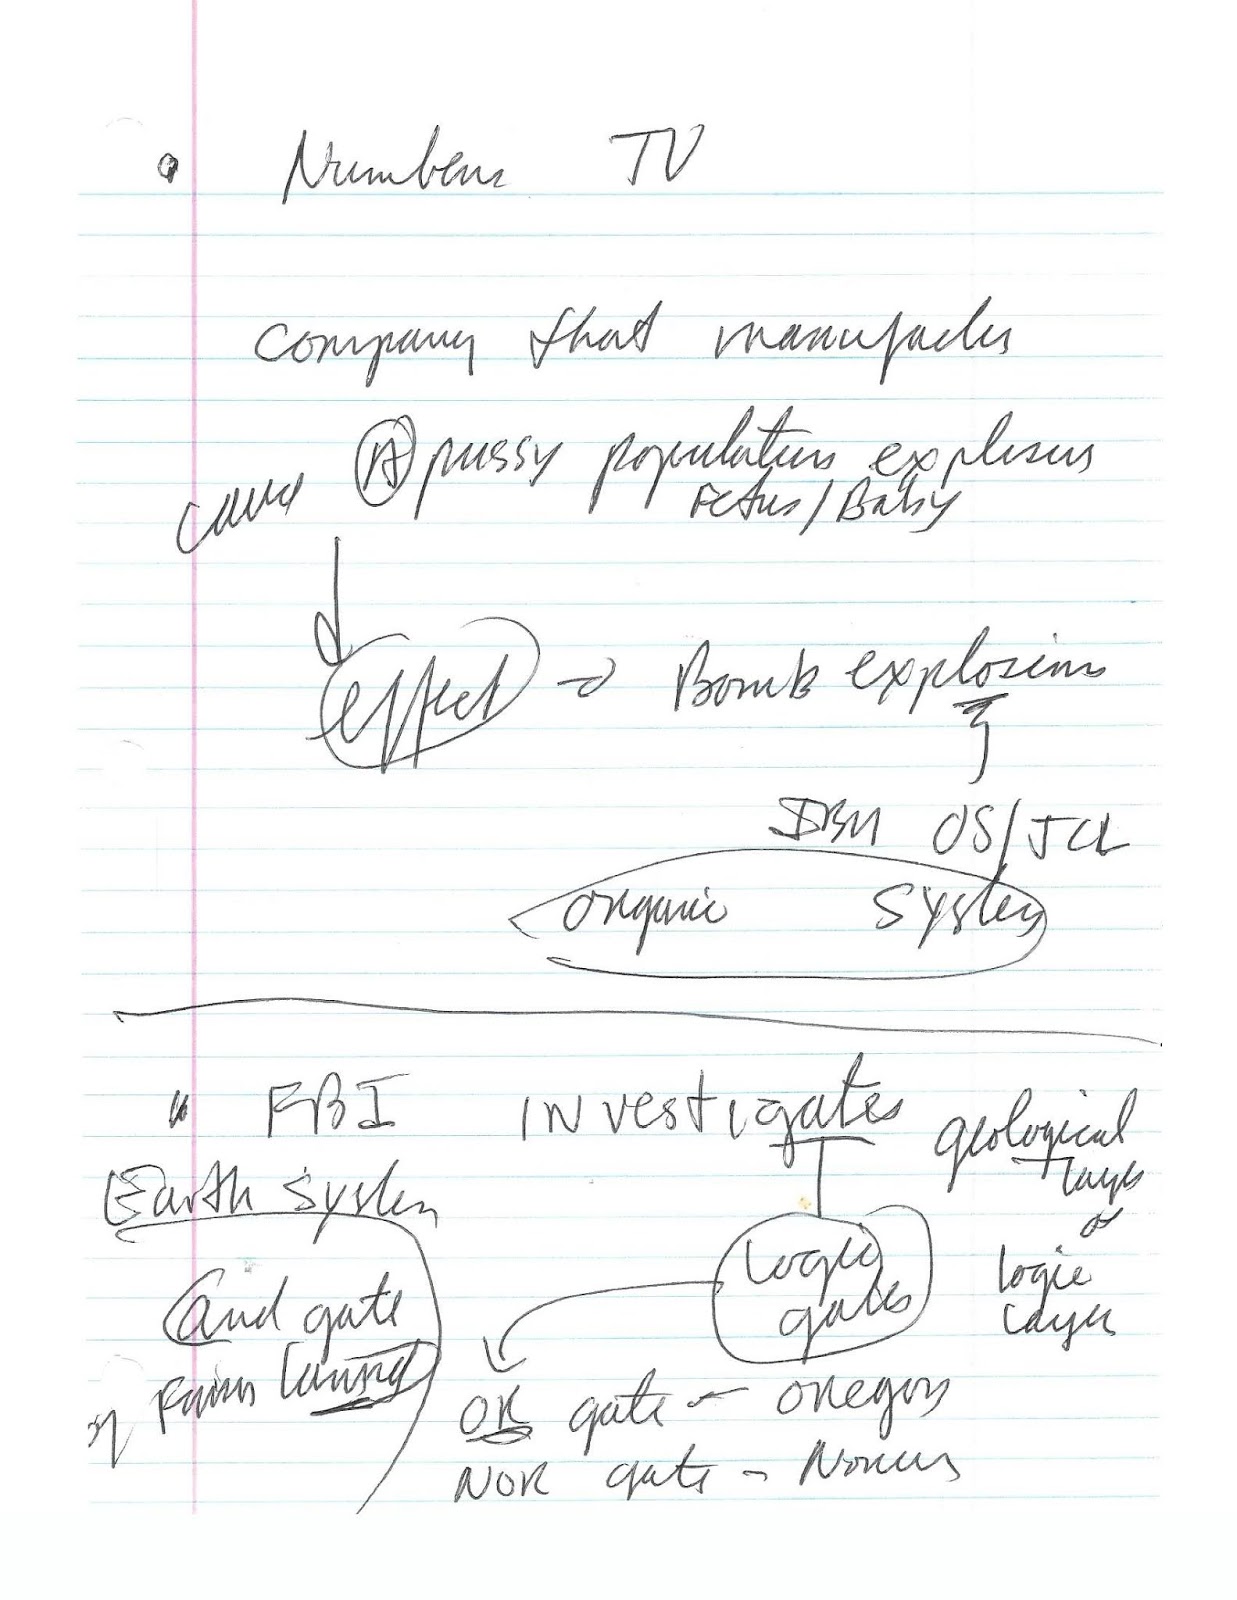 Numbers TV
company that manufacters
(A) pussy population explosions
cause Fetus/Baby
effect → Bomb explosions
IBM OS/JCL
organic System
" FBI investigates geological
Earth System layer
or
Logic gates logic
and gate Layer
Farm land
OR gate - oregon
NOR gate -